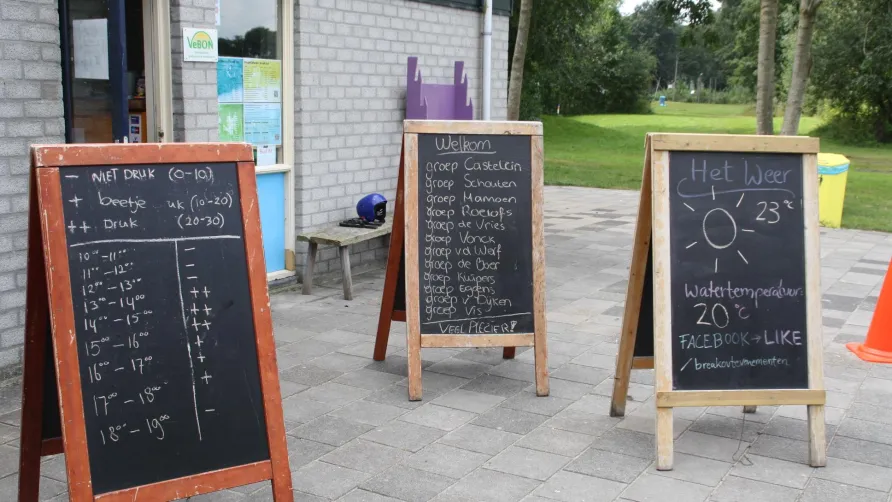 VeBON
- NIET DRUK (0-10)
+ beetje
(10-20)
++ DRUK (20-30)
10⁰⁰-11⁰⁰ -
11⁰⁰-12⁰⁰ -
12⁰⁰-13⁰⁰ -
13⁰⁰-14⁰⁰ ++
14⁰⁰-15⁰⁰ ++
15⁰⁰-16⁰⁰ +
16⁰⁰-17⁰⁰ +
17⁰⁰-18⁰⁰ -
18⁰⁰-19⁰⁰
Welkom
groep Castelein
groep Schouten
groep
groep Roelofs
groep de Vries
groep Vonck
groep v.d Werf
groep de Boer
groep Kuipers
groep Eggens
groep v Dijken
groep Vis
VEEL PLEZIER!
Het Weer
23°C
Watertemperatuur:
20°C
FACEBOOK → LIKE
/breakoutevenementen